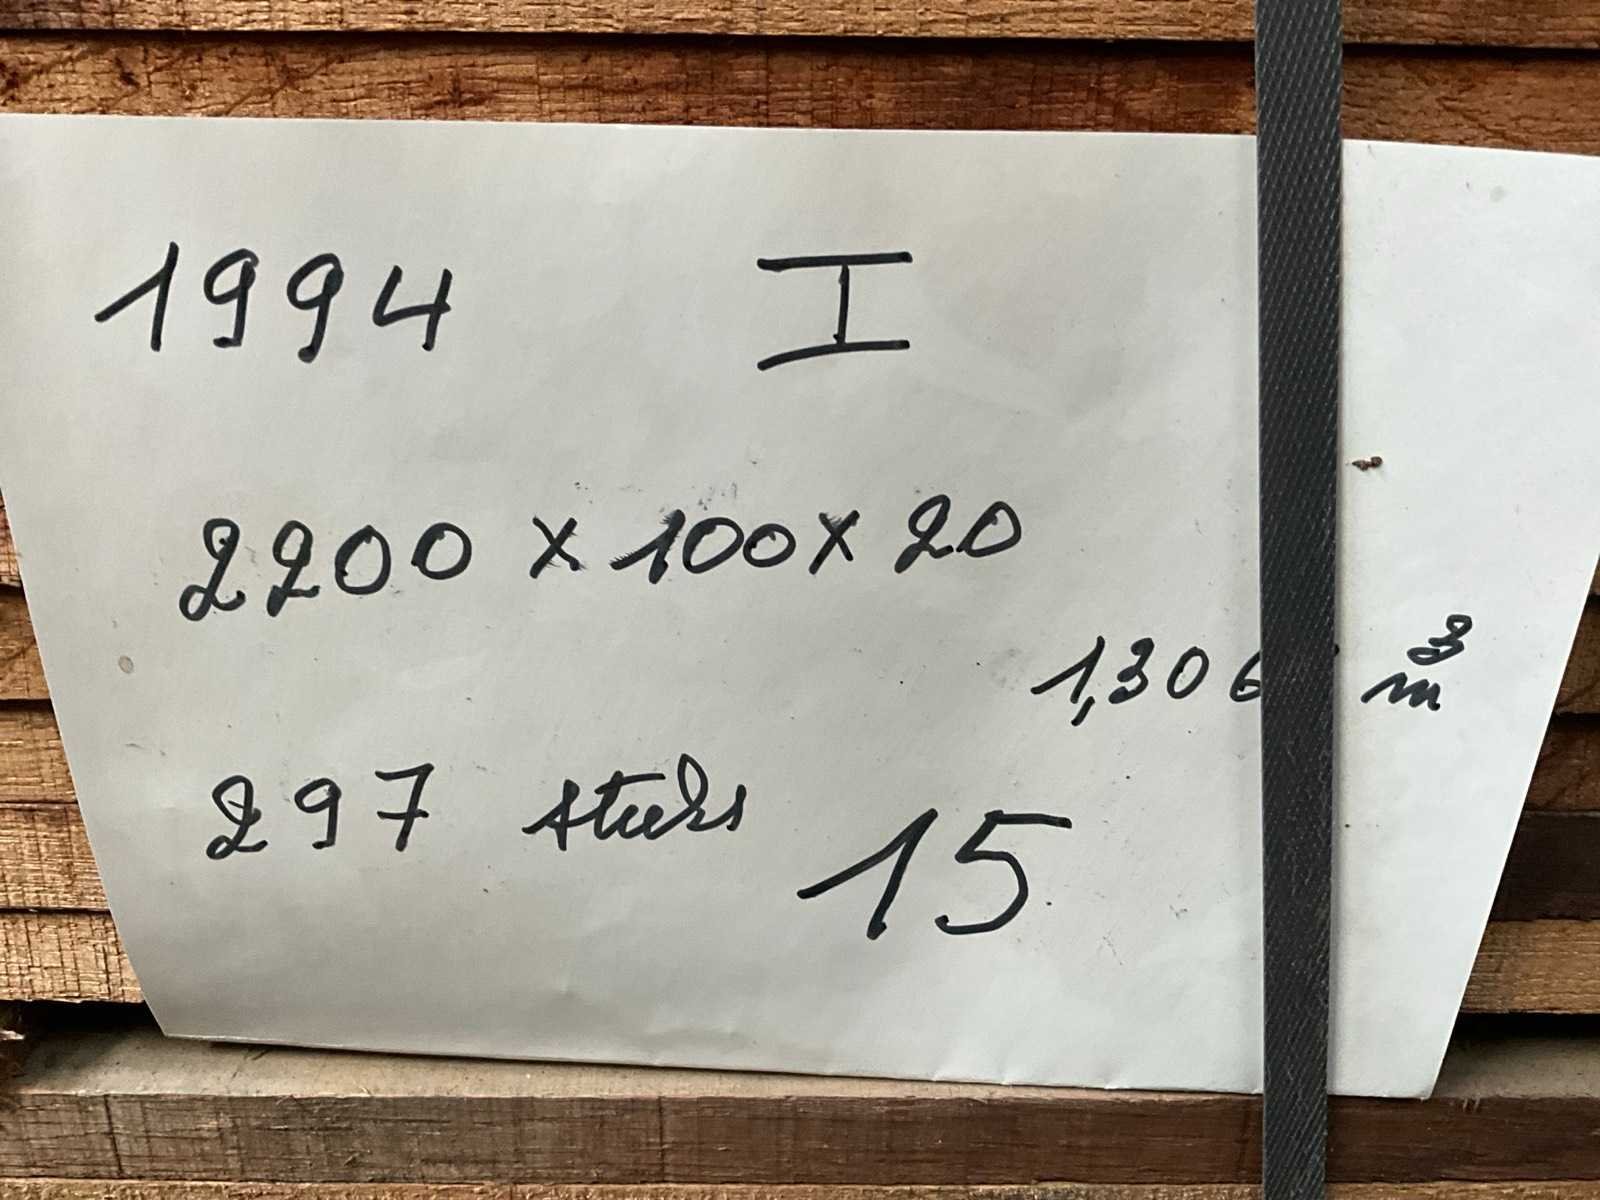 1994 I
2200 x 100 x 20
1,306 m³
297 stuks
15